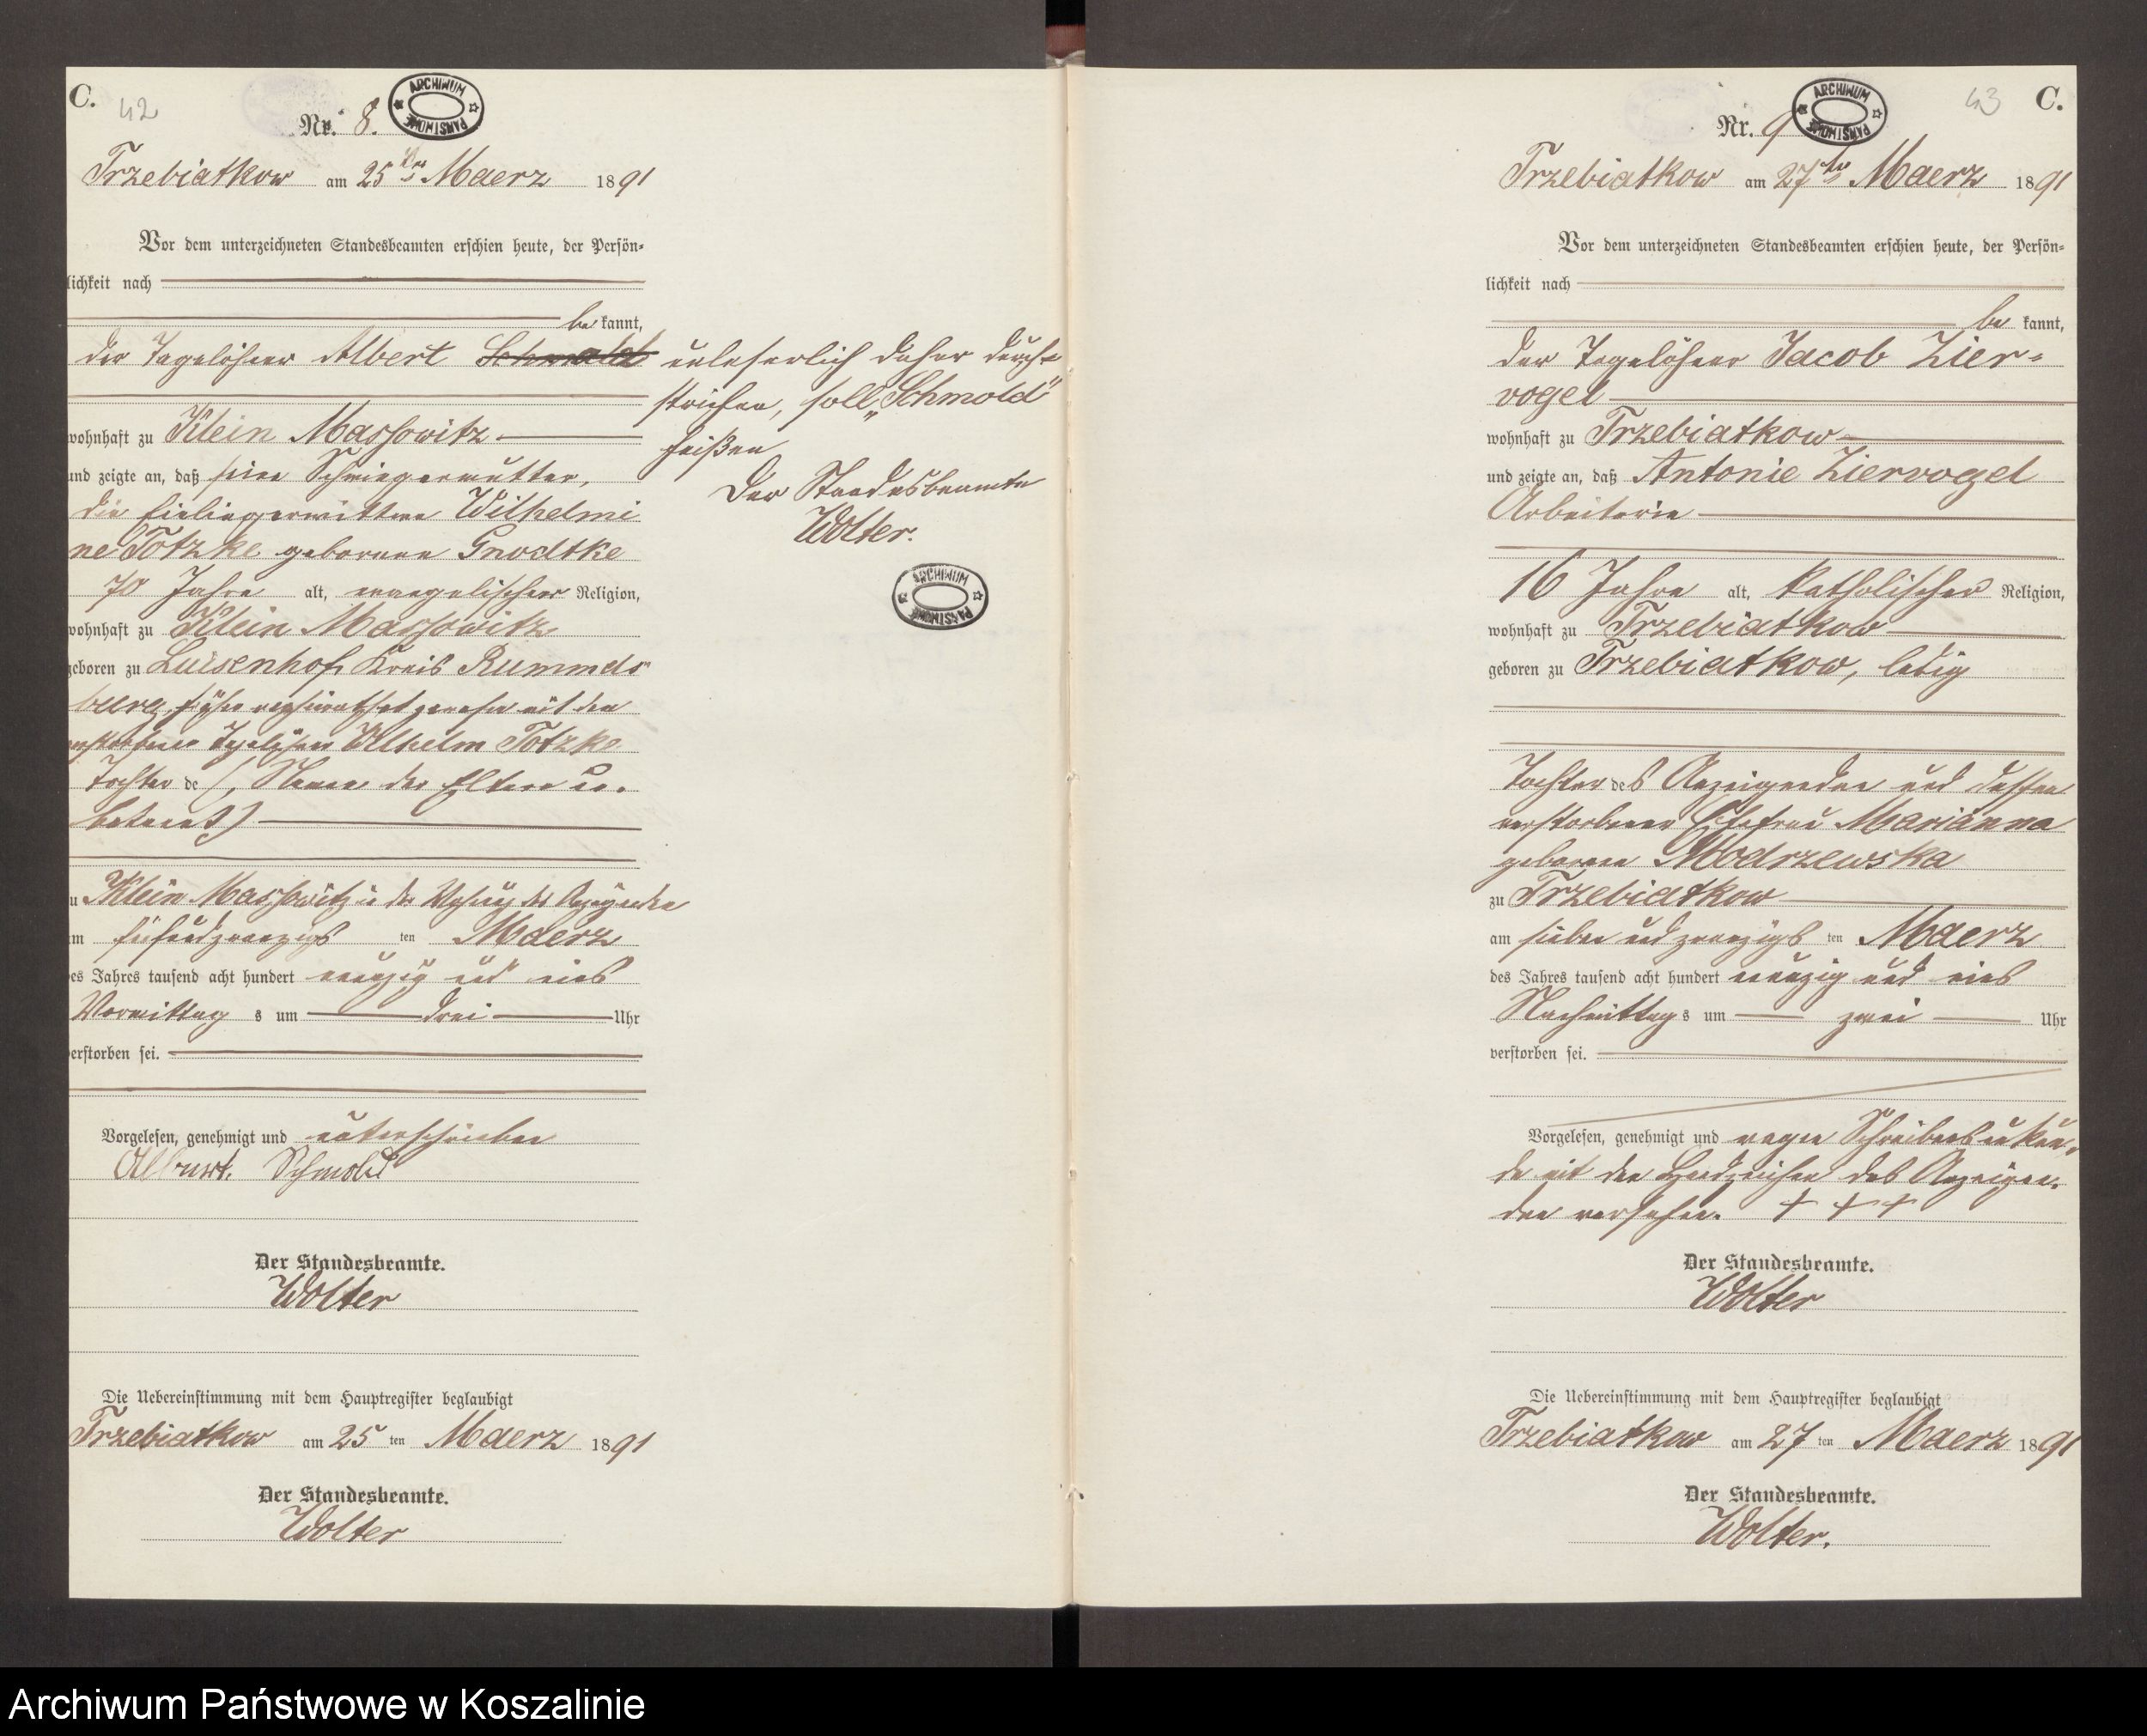 C. 42
Nr. 8.
ARCHIWUM PAŃSTWOWE
Trzebiatkow am 25ten Maerz 1891
Vor dem unterzeichneten Standesbeamten erschien heute, der Persön=
lichkeit nach
be kannt,
der Tagelöhner Albert
wohnhaft zu Klein Massowitz
und zeigte an, daß seine Schwiegermutter,
die Einliegerwittwe Wilhelmi
ne Totzke geborene Gnodtke
70 Jahre alt, evangelischer Religion,
wohnhaft zu Klein Massowitz
geboren zu Luisenhof, Kreis Rummels
burg, früher verheirathet gewesen mit dem
verstorbenen Tagelöhner Wilhelm Totzke
Tochter de (, Namen der Eltern un=
bekannt)
zu Klein Massowitz in der Wohnung des Anzeigenden
am fünfundzwanzigs ten Maerz
des Jahres tausend acht hundert neunzig und eins
Vormittag s um drei Uhr
verstorben sei.
Vorgelesen, genehmigt und unterschrieben
Albert Schmold
Der Standesbeamte.
Wolter
Die Uebereinstimmung mit dem Hauptregister beglaubigt
Trzebiatkow am 25 ten Maerz 1891
Der Standesbeamte.
Wolter
unleserlich daher durch=
strichen, soll „Schmold"
heißen
Der Standesbeamte
Wolter.
ARCHIWUM PAŃSTWOWE
43 C.
Nr. 9
ARCHIWUM PAŃSTWOWE
Trzebiatkow am 27ten Maerz 1891
Vor dem unterzeichneten Standesbeamten erschien heute, der Persön=
lichkeit nach
be kannt,
der Tagelöhner Jacob Zier=
vogel
wohnhaft zu Trzebiatkow
und zeigte an, daß Antonie Ziervogel
Arbeiterin
16 Jahre alt, katholischer Religion,
wohnhaft zu Trzebiatkow
geboren zu Trzebiatkow, ledig
Tochter des Anzeigenden und dessen
verstorbenen Ehefrau Marianna
geborene Modrzewska
zu Trzebiatkow
am sieben und zwanzigs ten Maerz
des Jahres tausend acht hundert neunzig und eins
Nachmittag s um zwei Uhr
verstorben sei.
Vorgelesen, genehmigt und wegen Schreibensunkun=
de mit den Handzeichen des Anzeigen=
den versehen. + + +
Der Standesbeamte.
Wolter
Die Uebereinstimmung mit dem Hauptregister beglaubigt
Trzebiatkow am 27 ten Maerz 1891
Der Standesbeamte.
Wolter.
Archiwum Państwowe w Koszalinie